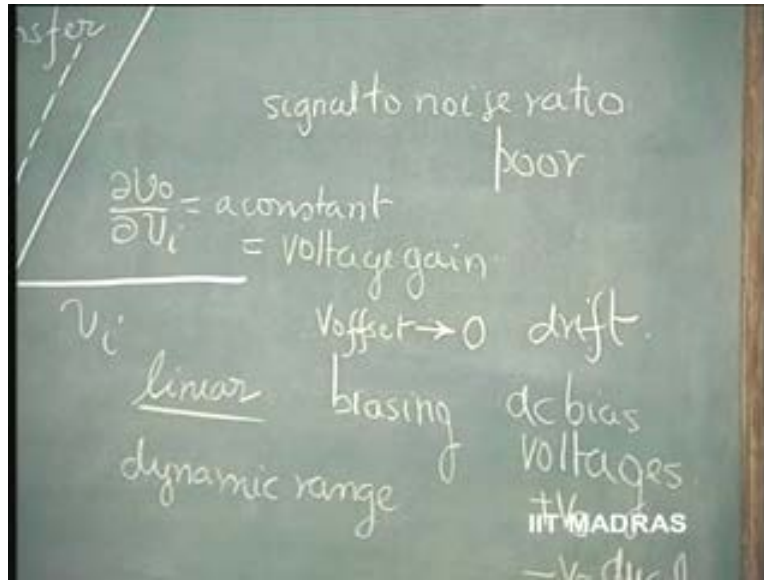 nsfer
signal to noise ratio
poor
∂Vo/∂Vi = a constant
= voltage gain
Vi
Voffset → 0 drift.
linear biasing dc bias
voltages
dynamic range
IIT MADRAS